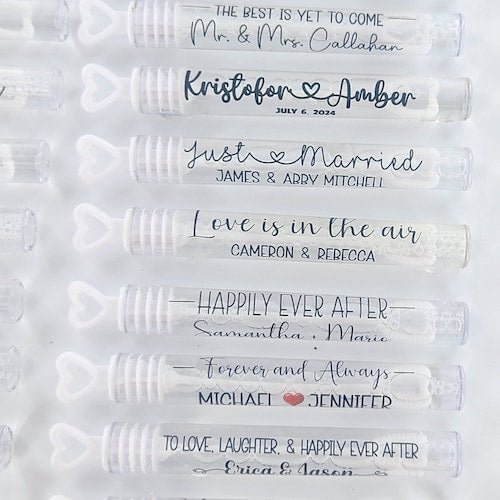 THE BEST IS YET TO COME
Mr. & Mrs. Callahan
Kristofor ♡ Amber
JULY 6, 2024
Just ♡ Married
JAMES & ABBY MITCHELL
Love is in the air
CAMERON & REBECCA
HAPPILY EVER AFTER
Samantha + Mario
Forever and Always
MICHAEL ❤ JENNIFER
TO LOVE, LAUGHTER, & HAPPILY EVER AFTER
Erica & Jason